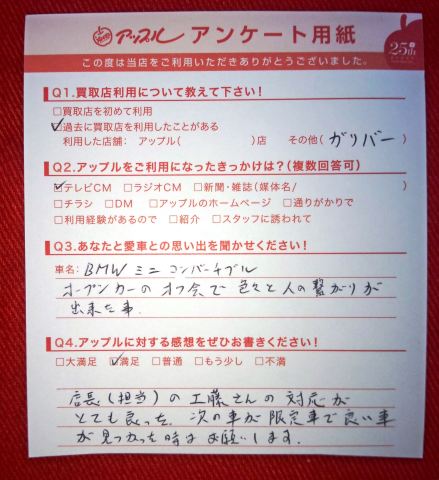 アップル アンケート用紙
25th
この度は当店をご利用いただきありがとうございました。
Q1.買取店利用について教えて下さい!
□買取店を初めて利用
☑過去に買取店を利用したことがある
利用した店舗: アップル( )店 その他(ガリバー)
Q2.アップルをご利用になったきっかけは?(複数回答可)
☑テレビCM □ラジオCM □新聞・雑誌(媒体名/ )
□チラシ □DM □アップルのホームページ □通りがかりで
□利用経験があるので □紹介 □スタッフに誘われて
Q3.あなたと愛車との思い出を聞かせください!
車名: BMW ミニ コンバーチブル
オープンカーのオフ会で色々と人の繋がりが
出来た事。
Q4.アップルに対する感想をぜひお書きください!
□大満足 ☑満足 □普通 □もう少し □不満
店長(担当)の工藤さんの対応が
とても良った。次の車が限定車で良い車
が見つかった時はお願いします。